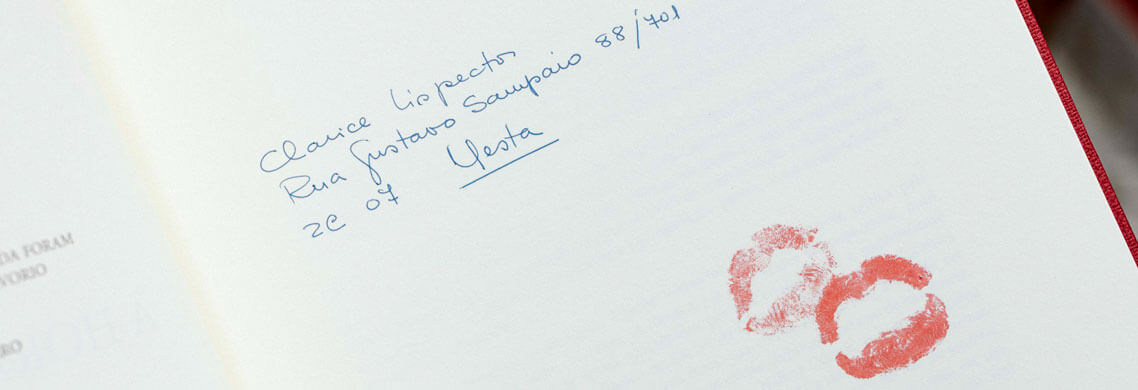 Clarice Lispector
Rua Gustavo Sampaio 88/701
ZC 07 Nesta
DA FORAM
VORIO
RO